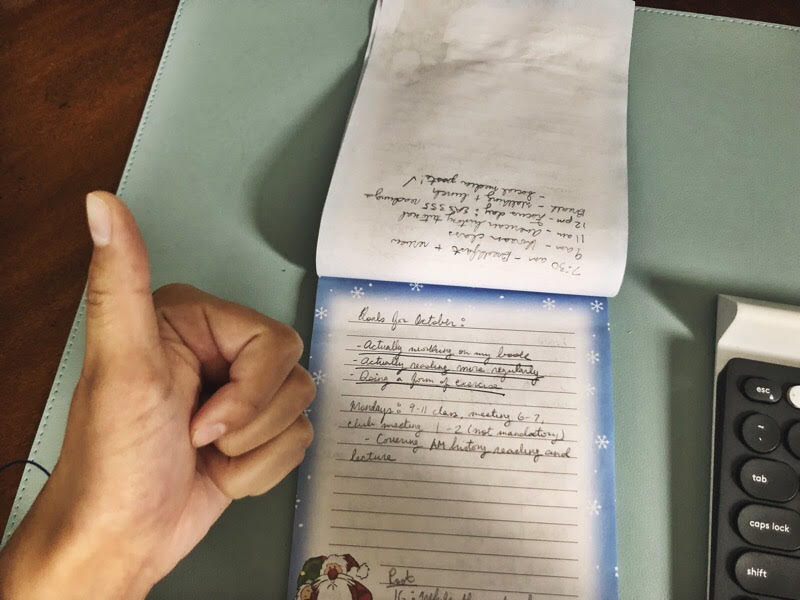 7:30 am - Breakfast + review
9 am - Korean class
11 am - American history tutorial
12 pm - Focus day: EAS readings
Break - walking + lunch
- Social media posts! ✓
Goals for October:
- Actually working on my book
- Actually reading more regularly
- Doing a form of exercise
Mondays: 9-11 class, meeting 6-7,
club meeting 1-2 (not mandatory)
- Covering AM history reading and
lecture
Post
16:
esc
~
`
tab
caps lock
shift